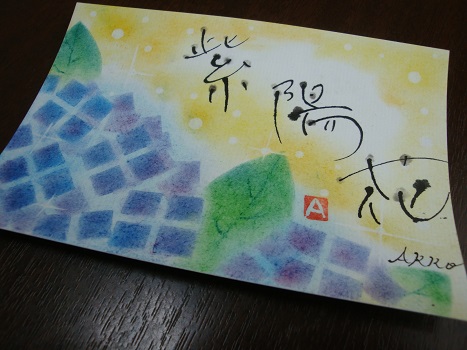 紫陽花
A
AKKO